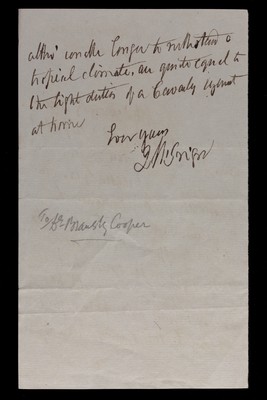 altho' unable longer to withstand a
tropical climate, are quite equal to
the light duties of a Cavalry regiment
at home
Ever yours
J McGrigor
To Dr. Bransby Cooper